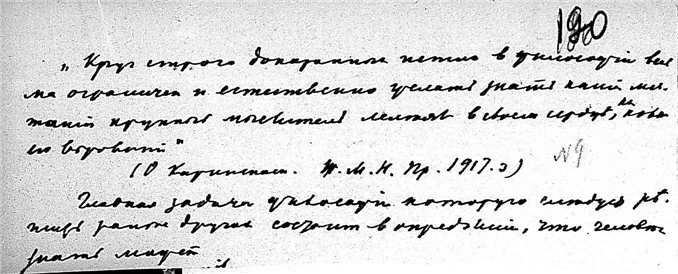 190
„Круг строго доказанных истин в философіи весь
ма ограничен и естественно желать знать какие ме-
таній крупный мыслитель лелеял в своем сердце, на ново
его верованія"
(О Каринском. Ж. М. Н. Пр. 1917. 3)
№9
Главная задача философіи которую следует рѣ-
шить раньше других состоит в опредѣленіи, что человек
знать может